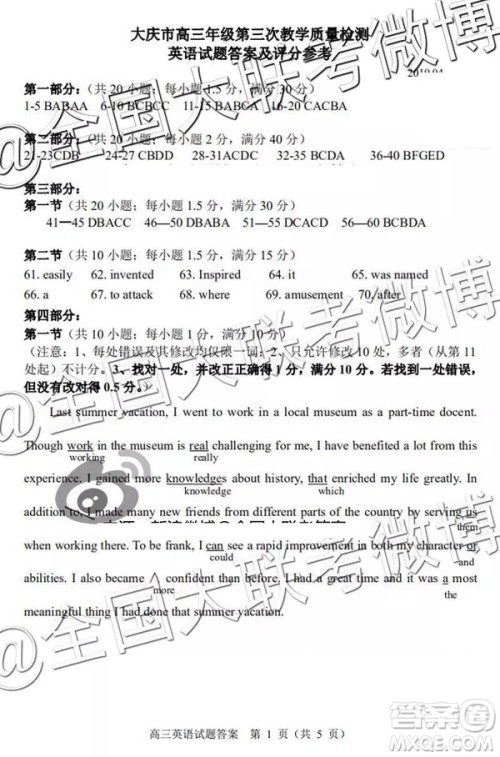 大庆市高三年级第三次教学质量检测
英语试题答案及评分参考
2019.04
第一部分：（共 20 小题；每小题 1.5 分，满分 30 分）
1-5 BABAA 6-10 BCBCC 11-15 BABCA 16-20 CACBA
第二部分：（共 20 小题；每小题 2 分，满分 40 分）
21-23CDB 24-27 CBDD 28-31ACDC 32-35 BCDA 36-40 BFGED
第三部分：
第一节（共 20 小题；每小题 1.5 分，满分 30 分）
41—45 DBACC 46—50 DBABA 51—55 DCACD 56—60 BCBDA
第二节（共 10 小题；每小题 1.5 分，满分 15 分）
61. easily 62. invented 63. Inspired 64. it 65. was named
66. a 67. to attack 68. where 69. amusement 70. after
第四部分：
第一节（共 10 小题；每小题 1 分，满分 10 分）
（注意：1、每处错误及其修改均仅限一词；2、只允许修改 10 处，多者（从第 11
处起）不计分。3、找对一处，并改正正确得 1 分，满分 10 分。若找到一处错误，
但没有改对得 0.5 分。）
Last summer vacation, I went to work in a local museum as a part-time docent.
Though work in the museum is real challenging for me, I have benefited a lot from this
working really
experience. I gained more knowledges about history, that enriched my life greatly. In
knowledge which
addition to, I made many new friends from different parts of the country by serving us
them
when working there. To be frank, I can see a rapid improvement in both my character or
could and
abilities. I also became ∧ confident than before. I had a great time and it was a most
more the
meaningful thing I had done that summer vacation.
高三英语试题答案 第 1 页（共 5 页）
@全国大联考微博
@全国大联考微博
@全国大联考微博